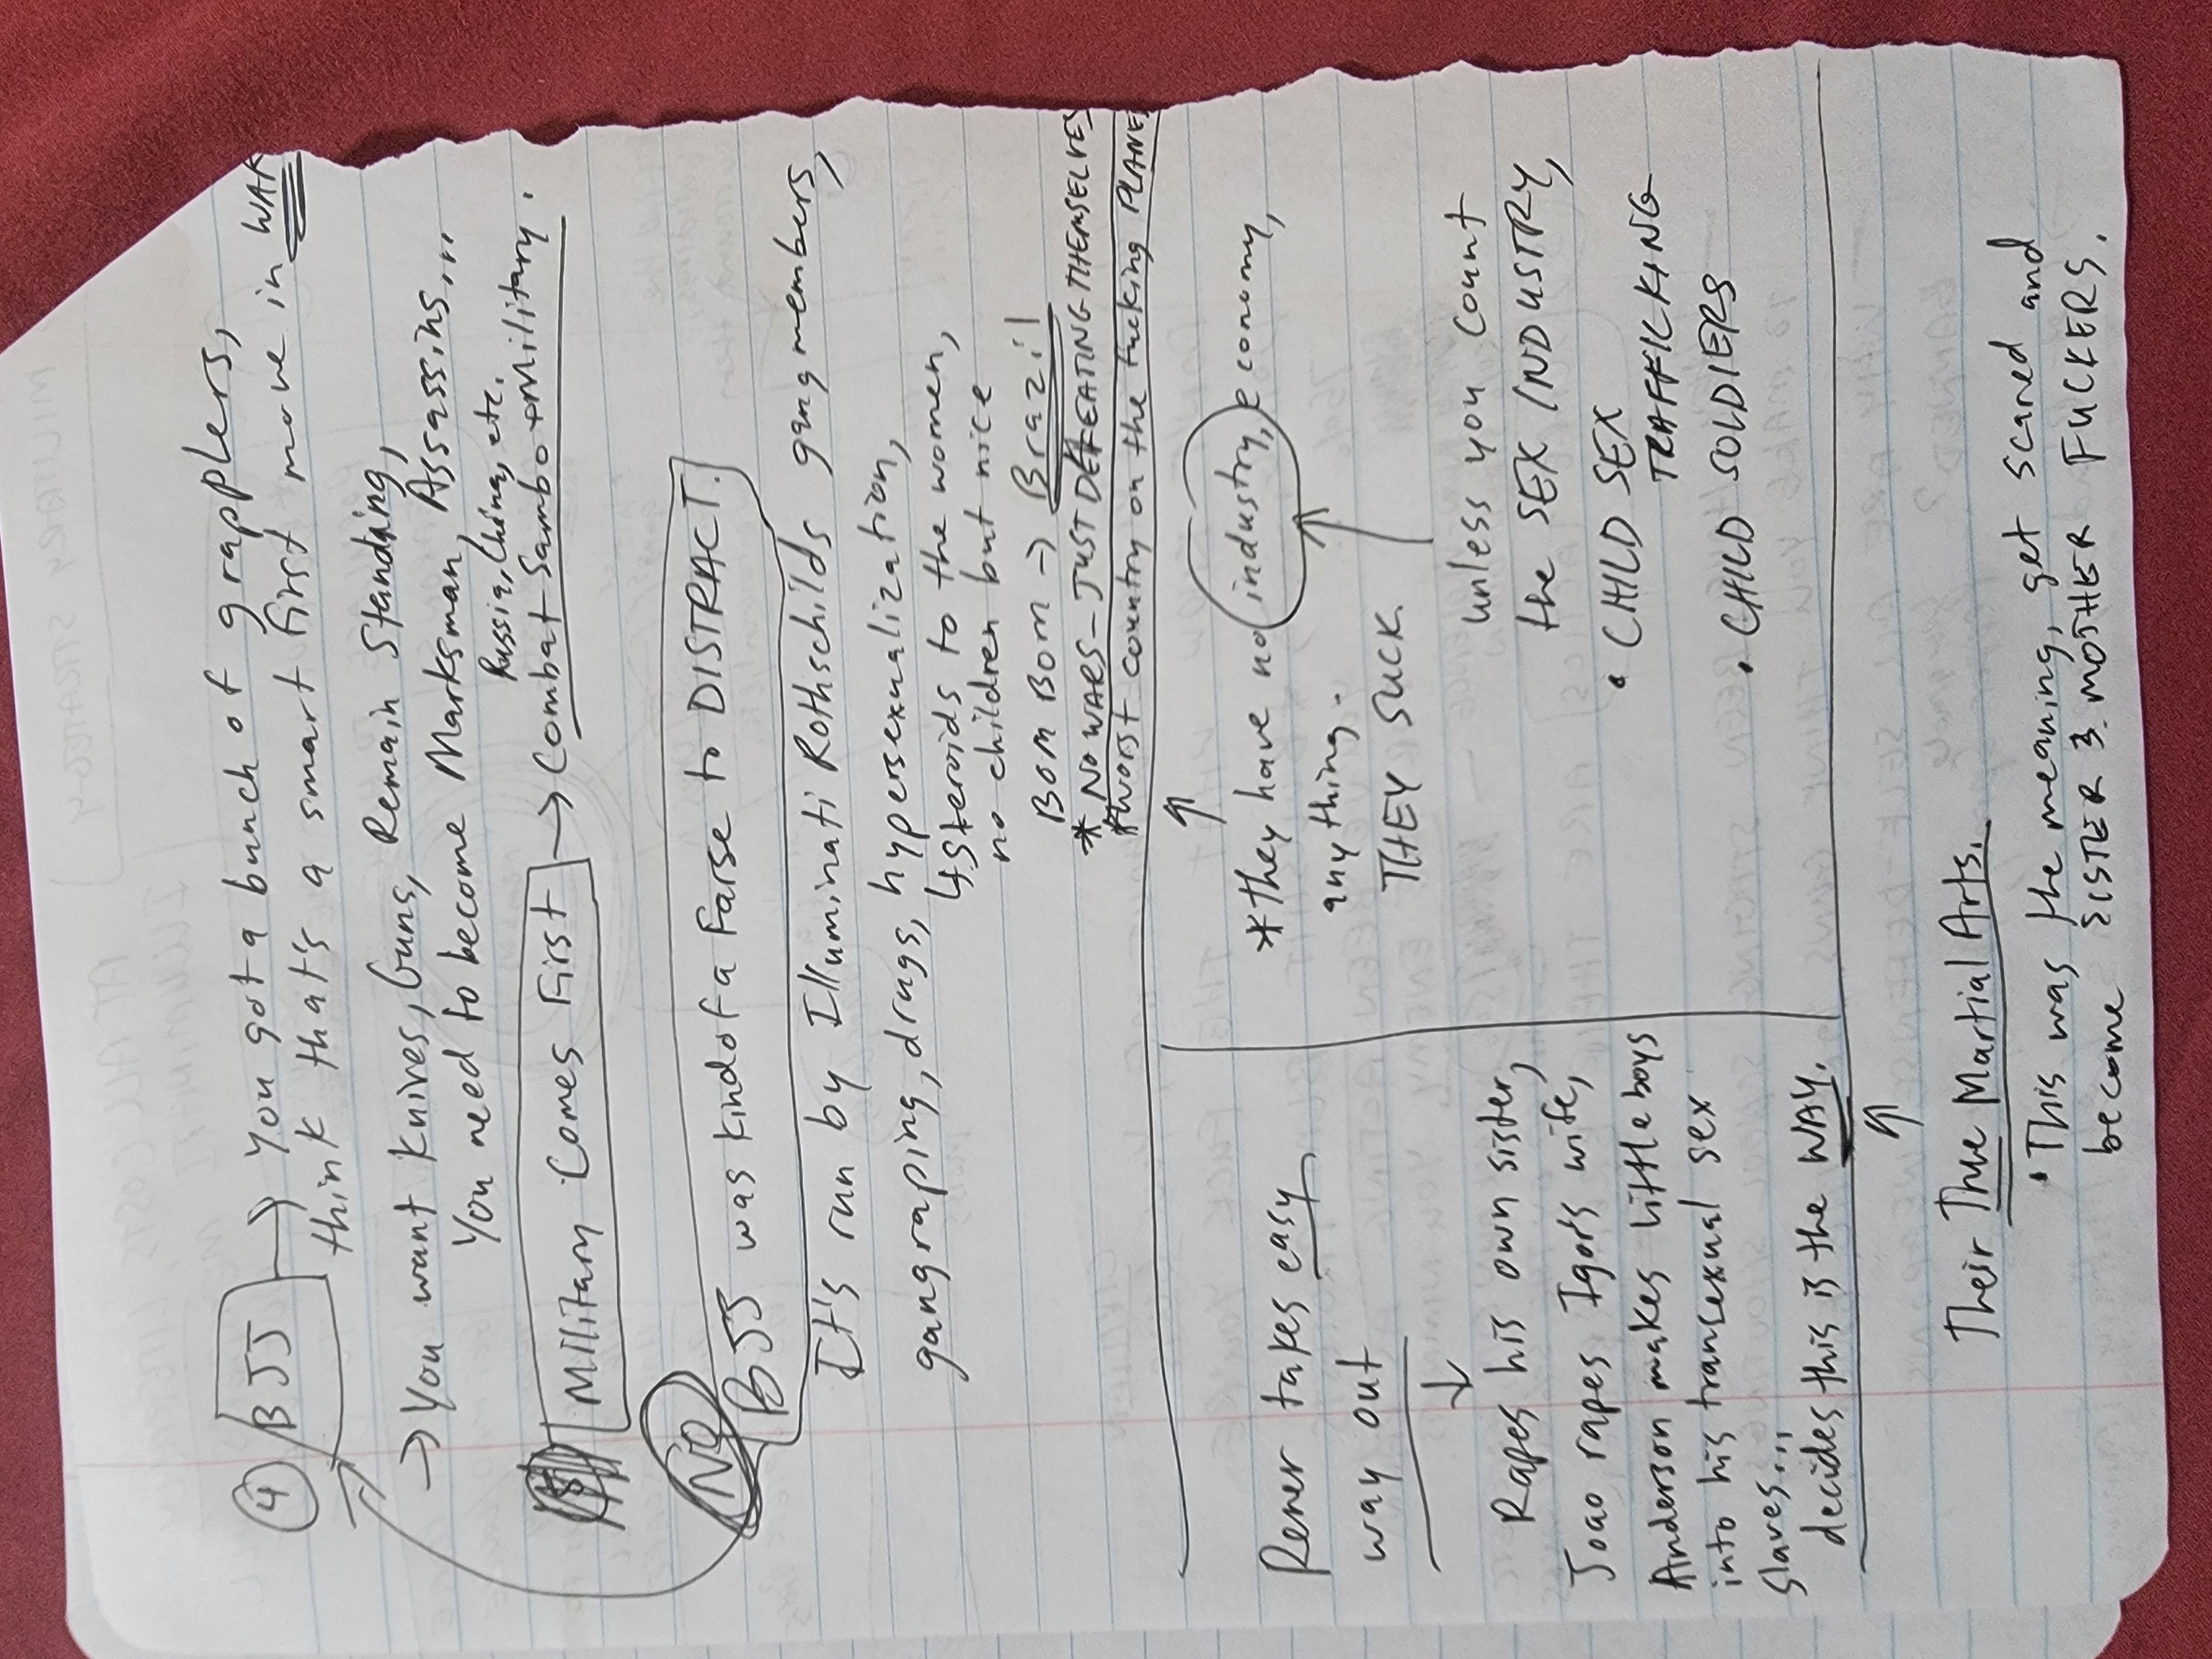 ④ BJJ → You got a bunch of grapplers,
think that's a smart first move in WAR
→ You want Knives, Guns, Remain Standing,
You need to become Marksman, Assassins...
Russia, China, etc.
Military Comes First → Combat Sambo + Military.
NO
BJJ was kind of a Farse to DISTRACT.
It's run by Illuminati Rothschilds gang members,
gangraping, drugs, hypersexualization,
↳ steroids to the women,
no children but nice
BOM BOM → Brazil
* NO WARS - JUST DEFEATING THEMSELVES
* Worst country on the fucking PLANE
Rener takes easy
way out
↓
Rapes his own sister,
Joao rapes Igor's wife,
Anderson makes little boys
into his transexual sex
slaves...
decides this is the WAY.
* they have no industry, economy,
anything.
THEY SUCK.
unless you count
the SEX INDUSTRY,
• CHILD SEX
TRAFFICKING
• CHILD SOLDIERS
Their True Martial Arts.
• This was the meaning, get scared and
become SISTER & MOTHER FUCKERS.